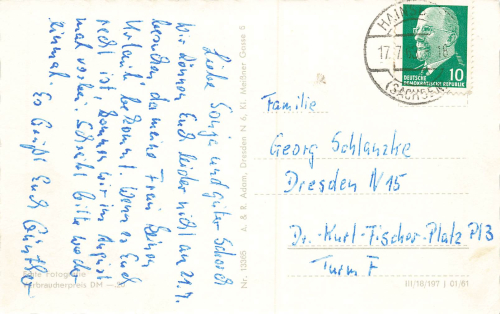 Liebe Sonja und guter Schorsch
Wir können Euch leider nicht am 21.7.
besuchen, da meine Frau keinen
Urlaub bekommt. Wenn es Euch
recht ist, kommen wir im August
mal vorbei. Schreibt bitte noch
einmal. Es grüßt Euch Günther
Echte Fotografie
Verbraucherpreis DM
A. & R. Adam, Dresden N 6, Kl. Meißner Gasse 5
Nr. 13365
HAIN
17.7.
(SACHSEN)
DEUTSCHE
DEMOKRATISCHE REPUBLIK
10
Familie
Georg Schlanzke
Dresden N 15
Dr.-Kurl-Fischer-Platz Pl3
Turm F
III/18/197 | 01/61